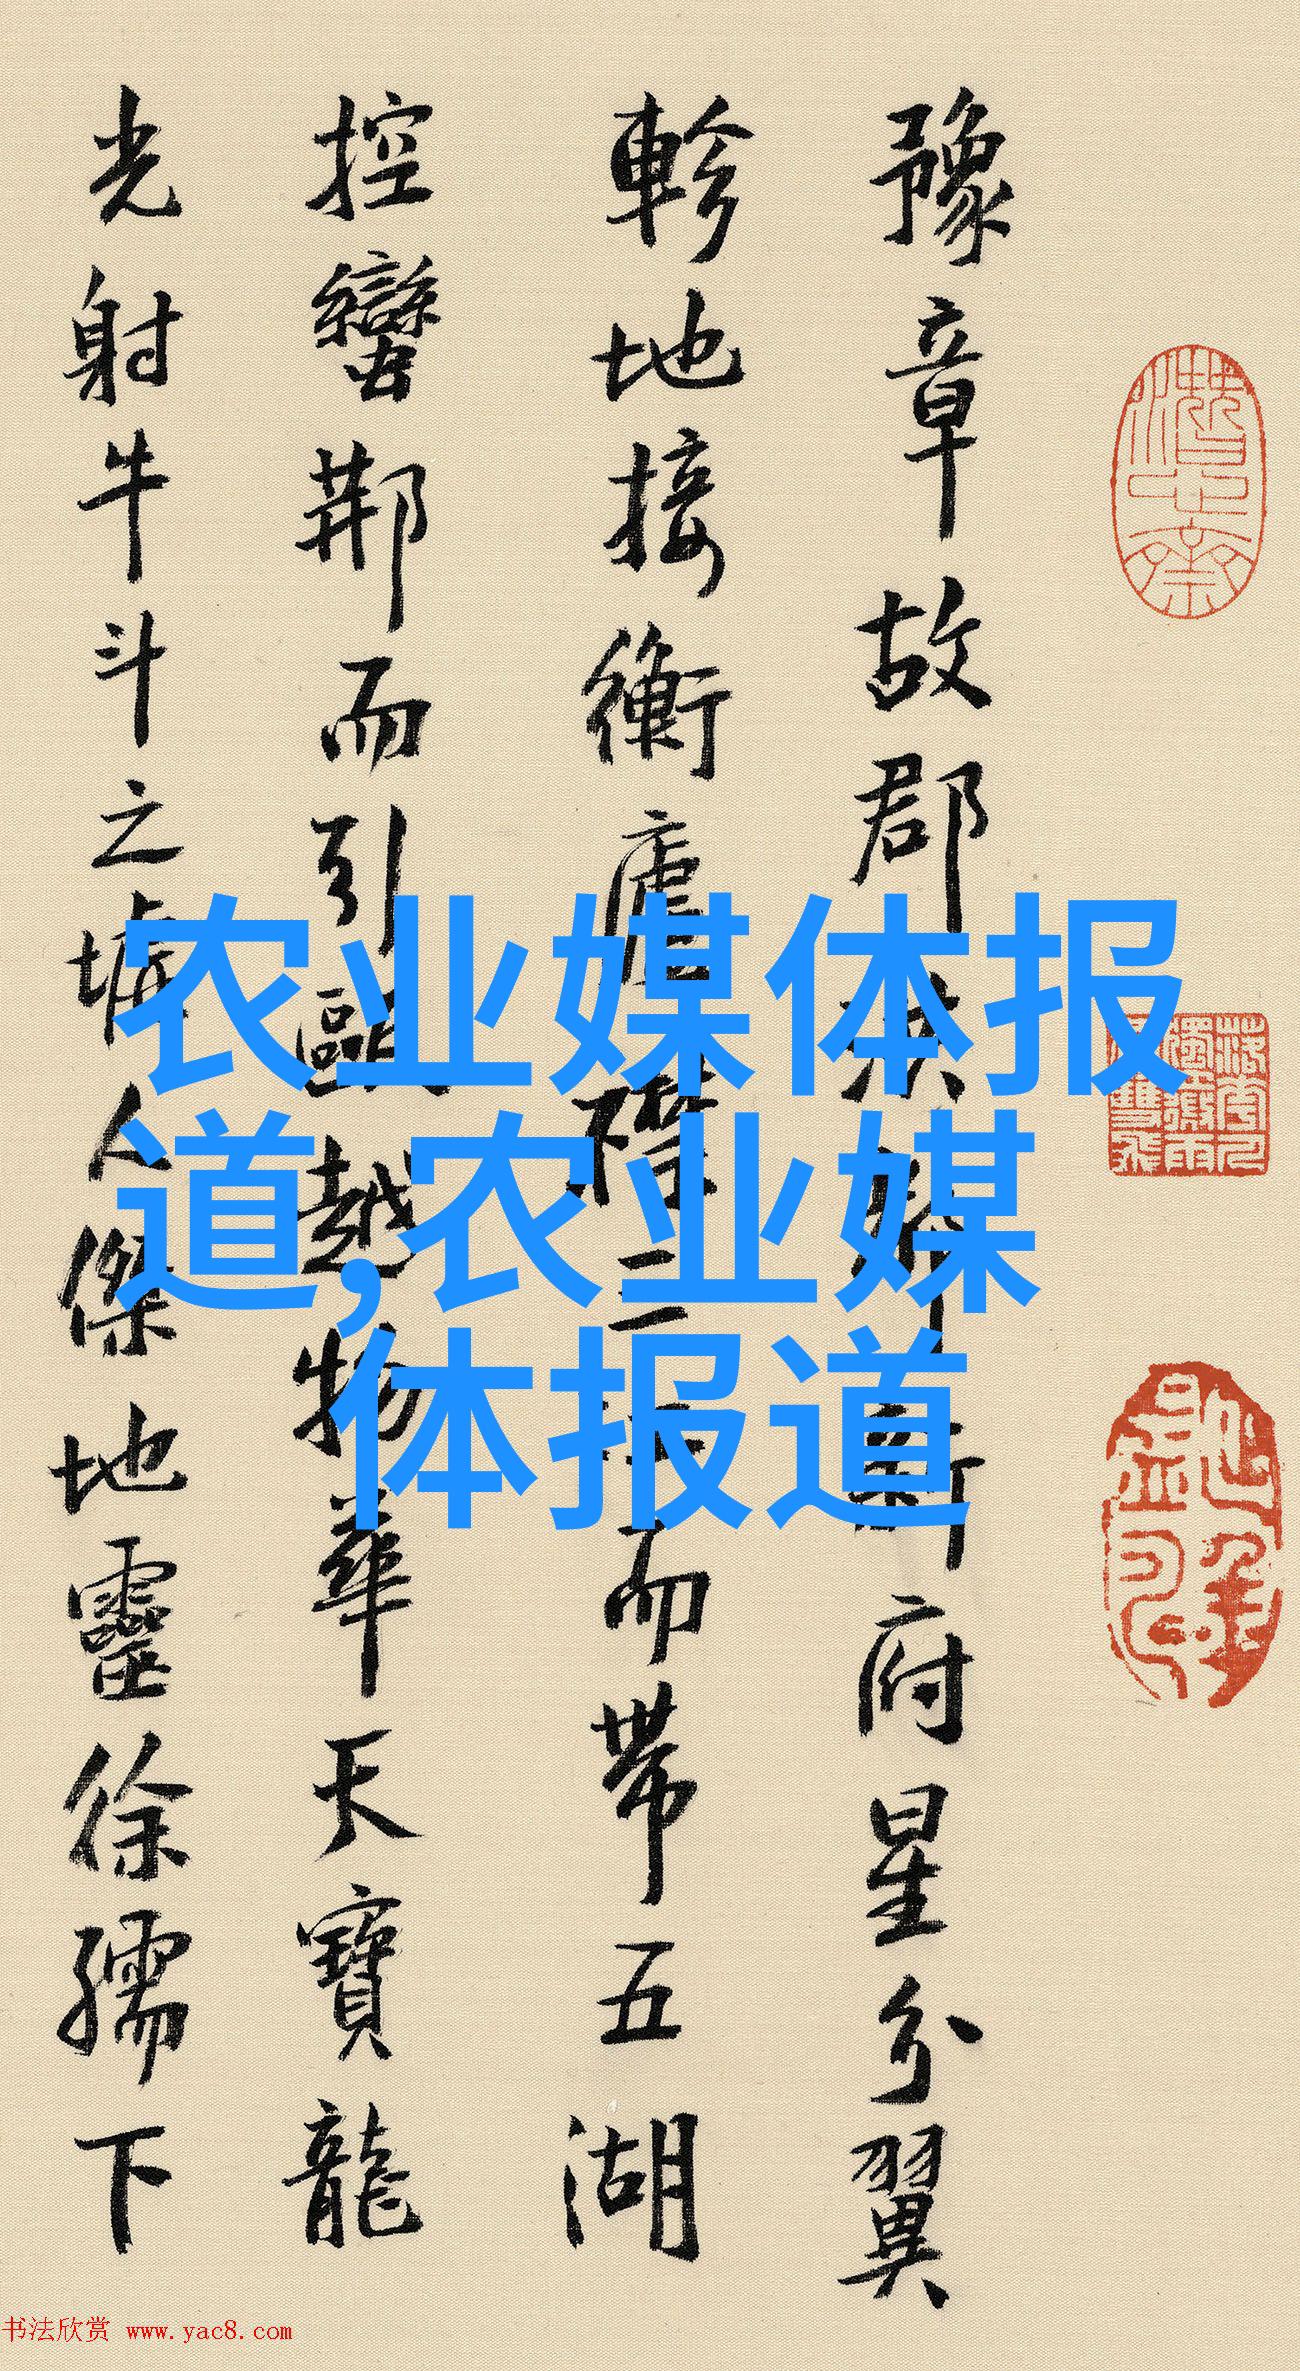 豫章故郡洪都新府星分翼
軫地接衡廬襟三江而帶五湖
控蠻荆而引甌越物華天寶龍
光射牛斗之墟人傑地靈徐孺下
农业媒体报
道,农业媒
体报道
书法欣赏 www.yac8.com